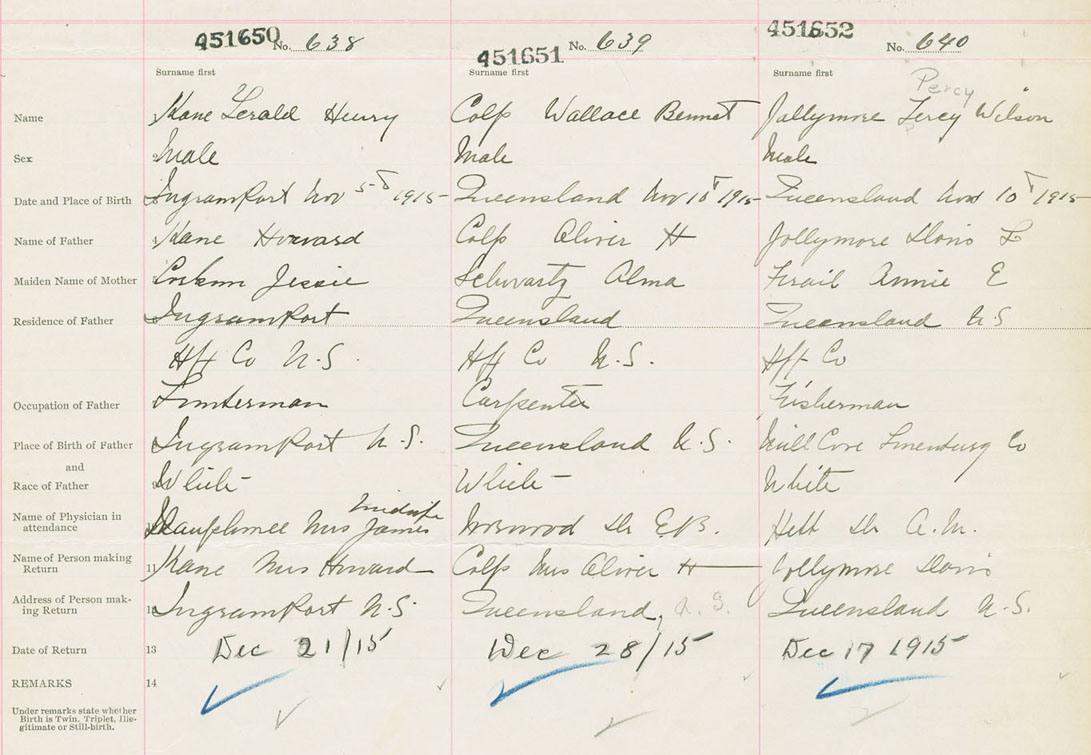 451650 No. 638 451651 No. 639 451652 No. 640
Surname first Surname first Surname first
Percy
Name Kane Gerald Henry Colp Wallace Bennet Jollymore Percy Wilson
Sex Male Male Male
Date and Place of Birth Ingramport Nov 5 1915 Queensland Nov 10 1915 Queensland Nov 10 1915
Name of Father 4 Kane Howard Colp Oliver H Jollymore
Maiden Name of Mother Jessie Schwartz Alma Annie E
Residence of Father Ingramport Queensland Queensland N.S
Hfx Co N.S. Hfx Co N.S. Hfx Co
Occupation of Father Carpenter Fisherman
Place of Birth of Father Ingramport N.S. Queensland N.S. Mill Cove Lunenburg Co
and
Race of Father White White White
Name of Physician in midwife
attendance Mrs James Norwood Dr E.B. Dr A.M.
Name of Person making
Return 11 Kane Mrs Howard Colp Mrs Oliver H Jollymore
Address of Person mak-
ing Return Ingramport N.S. Queensland, N.S. Queensland N.S.
Date of Return 13 Dec 21/15 Dec 28/15 Dec 17 1915
REMARKS 14
Under remarks state whether
Birth is Twin, Triplet, Ille-
gitimate or Still-birth.